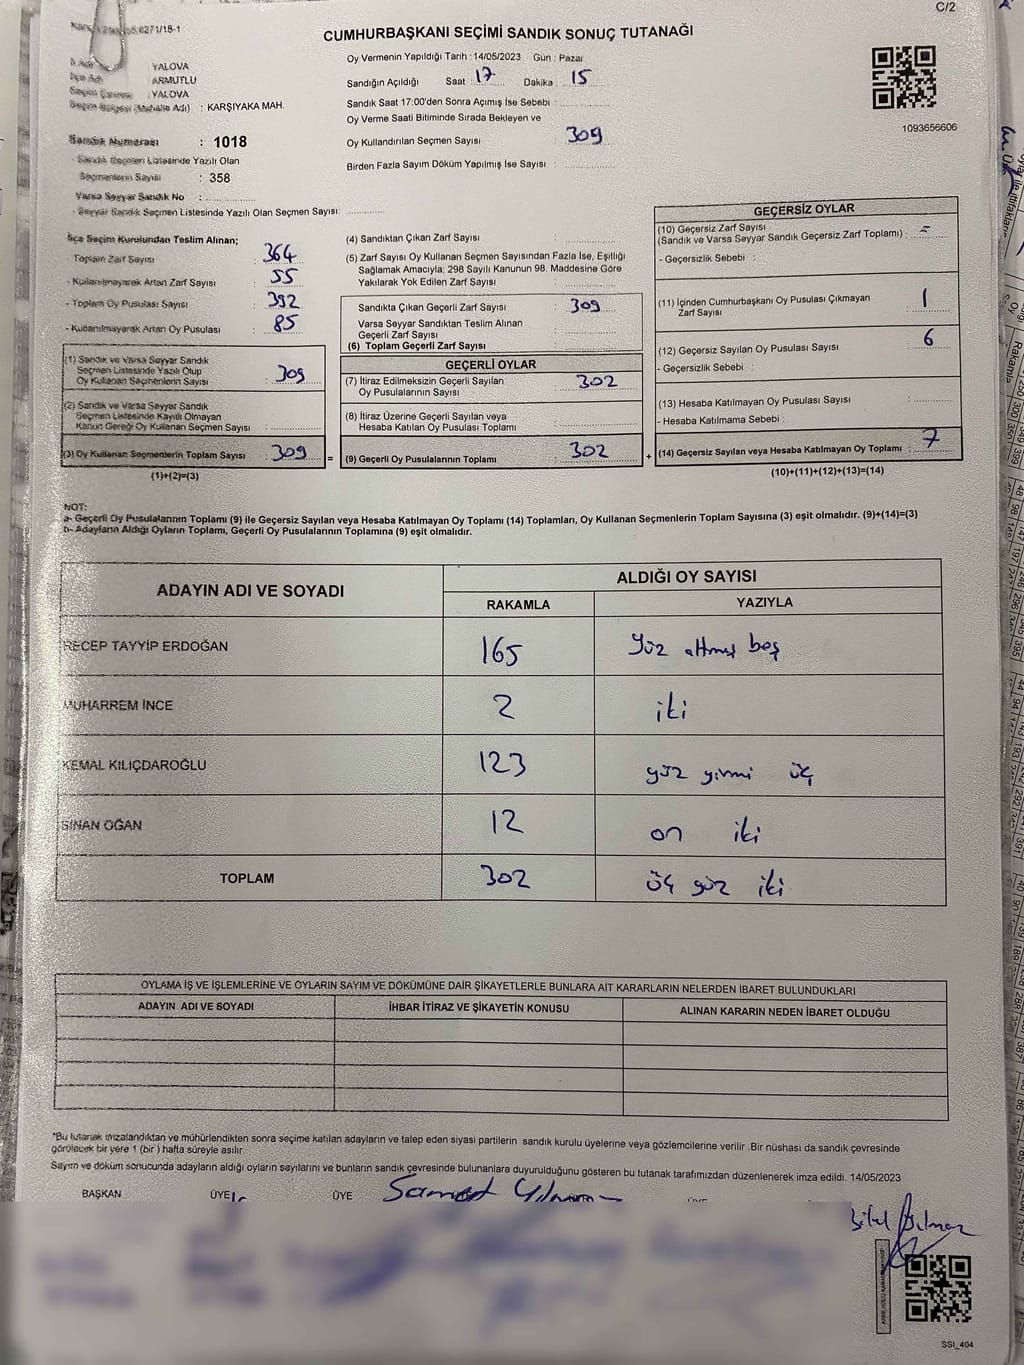 C/2
CUMHURBAŞKANI SEÇİMİ SANDIK SONUÇ TUTANAĞI
Oy Vermenin Yapıldığı Tarih : 14/05/2023 Gün : Pazar
İl Adı YALOVA
İlçe Adı ARMUTLU
Seçim Çevresi : YALOVA
Seçim Bölgesi (Mahalle Adı) : KARŞIYAKA MAH.
Sandığın Açıldığı Saat : 17 Dakika : 15
Sandık Saat 17:00'den Sonra Açımış İse Sebebi :
Oy Verme Saati Bitiminde Sırada Bekleyen ve
Oy Kullandırılan Seçmen Sayısı : 309
Birden Fazla Sayım Döküm Yapılmış İse Sayısı :
1093656606
Sandık Numarası : 1018
- Sandık Seçmen Listesinde Yazılı Olan
Seçmenlerin Sayısı : 358
Varsa Seyyar Sandık No :
- Seyyar Sandık Seçmen Listesinde Yazılı Olan Seçmen Sayısı:
İlçe Seçim Kurulundan Teslim Alınan;
- Toplam Zarf Sayısı : 364
- Kullanılmayarak Artan Zarf Sayısı : 55
- Toplam Oy Pusulası Sayısı : 392
- Kullanılmayarak Artan Oy Pusulası : 85
(1) Sandık ve Varsa Seyyar Sandık
Seçmen Listesinde Yazılı Olup
Oy Kullanan Seçmenlerin Sayısı : 309
(2) Sandık ve Varsa Seyyar Sandık
Seçmen Listesinde Kayıtlı Olmayan
Kanun Gereği Oy Kullanan Seçmen Sayısı :
(3) Oy Kullanan Seçmenlerin Toplam Sayısı : 309 =
(1)+(2)=(3)
(4) Sandıktan Çıkan Zarf Sayısı :
(5) Zarf Sayısı Oy Kullanan Seçmen Sayısından Fazla İse, Eşitliği
Sağlamak Amacıyla; 298 Sayılı Kanunun 98. Maddesine Göre
Yakılarak Yok Edilen Zarf Sayısı :
Sandıkta Çıkan Geçerli Zarf Sayısı : 309
Varsa Seyyar Sandıktan Teslim Alınan
Geçerli Zarf Sayısı :
(6) Toplam Geçerli Zarf Sayısı :
GEÇERLİ OYLAR
(7) İtiraz Edilmeksizin Geçerli Sayılan
Oy Pusulalarının Sayısı : 302
(8) İtiraz Üzerine Geçerli Sayılan veya
Hesaba Katılan Oy Pusulası Toplamı :
(9) Geçerli Oy Pusulalarının Toplamı : 302 +
GEÇERSİZ OYLAR
(10) Geçersiz Zarf Sayısı
(Sandık ve Varsa Seyyar Sandık Geçersiz Zarf Toplamı) : -
- Geçersizlik Sebebi :
(11) İçinden Cumhurbaşkanı Oy Pusulası Çıkmayan
Zarf Sayısı : 1
(12) Geçersiz Sayılan Oy Pusulası Sayısı : 6
- Geçersizlik Sebebi :
(13) Hesaba Katılmayan Oy Pusulası Sayısı :
- Hesaba Katılmama Sebebi :
(14) Geçersiz Sayılan veya Hesaba Katılmayan Oy Toplamı : 7
(10)+(11)+(12)+(13)=(14)
NOT:
a- Geçerli Oy Pusulalarının Toplamı (9) ile Geçersiz Sayılan veya Hesaba Katılmayan Oy Toplamı (14) Toplamları, Oy Kullanan Seçmenlerin Toplam Sayısına (3) eşit olmalıdır. (9)+(14)=(3)
b- Adayların Aldığı Oyların Toplamı, Geçerli Oy Pusulalarının Toplamına (9) eşit olmalıdır.
ADAYIN ADI VE SOYADI ALDIĞI OY SAYISI
RAKAMLA YAZIYLA
RECEP TAYYİP ERDOĞAN 165 Yüz altmış beş
MUHARREM İNCE 2 iki
KEMAL KILIÇDAROĞLU 123 yüz yirmi üç
SİNAN OĞAN 12 on iki
TOPLAM 302 üç yüz iki
OYLAMA İŞ VE İŞLEMLERİNE VE OYLARIN SAYIM VE DÖKÜMÜNE DAİR ŞİKAYETLERLE BUNLARA AİT KARARLARIN NELERDEN İBARET BULUNDUKLARI
ADAYIN ADI VE SOYADI İHBAR İTİRAZ VE ŞİKAYETİN KONUSU ALINAN KARARIN NEDEN İBARET OLDUĞU
*Bu tutanak imzalandıktan ve mühürlendikten sonra seçime katılan adayların ve talep eden siyasi partilerin sandık kurulu üyelerine veya gözlemcilerine verilir .Bir nüshası da sandık çevresinde
görülecek bir yere 1 (bir ) hafta süreyle asılır.
Sayım ve döküm sonucunda adayların aldığı oyların sayılarını ve bunların sandık çevresinde bulunanlara duyurulduğunu gösteren bu tutanak tarafımızdan düzenlenerek imza edildi. 14/05/2023
BAŞKAN ÜYE ÜYE Samet Yılmaz
Bilal Yılmaz
SSI_404